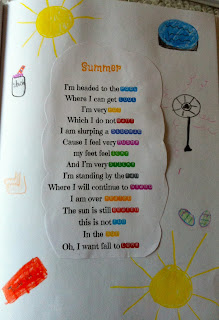 Summer
I'm headed to the POOL
Where I can get COOL
I'm very HOT
Which I do not
I am slurping a
Cause I feel very
my feet feel
And I'm very
I'm standing by the FAN
Where I will continue to STAND
I am over
The sun is still
this is not FUN
In the SUN
Oh, I want fall to COME